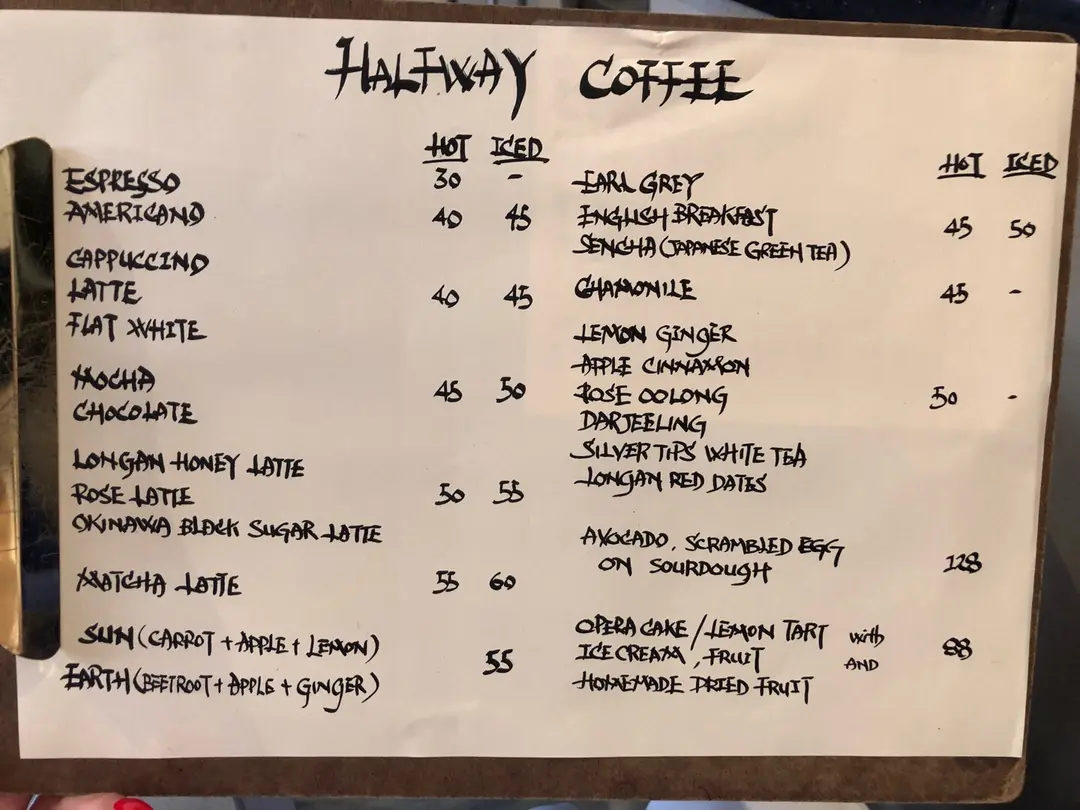 HALFWAY COFFEE
HOT ICED
ESPRESSO 30 -
AMERICANO 40 45
CAPPUCCINO
LATTE 40 45
FLAT WHITE
MOCHA
CHOCOLATE 45 50
LONGAN HONEY LATTE
ROSE LATTE 50 55
OKINAWA BLACK SUGAR LATTE
MATCHA LATTE 55 60
SUN (CARROT + APPLE + LEMON)
55
EARTH (BEETROOT + APPLE + GINGER)
HOT ICED
EARL GREY
ENGLISH BREAKFAST 45 50
SENCHA (JAPANESE GREEN TEA)
CHAMOMILE 45 -
LEMON GINGER
APPLE CINNAMON
ROSE OOLONG 50 -
DARJEELING
SILVER TIPS WHITE TEA
LONGAN RED DATES
AVOCADO, SCRAMBLED EGG
ON SOURDOUGH 128
OPERA CAKE / LEMON TART with
ICE CREAM, FRUIT AND 88
HOMEMADE DRIED FRUIT